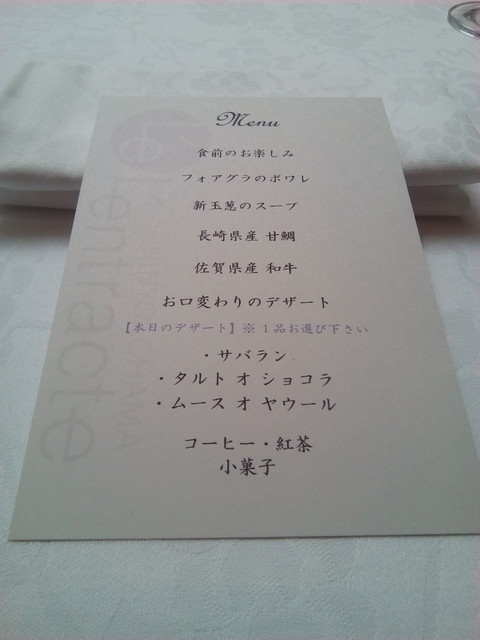 Menu
食前のお楽しみ
フォアグラのポワレ
新玉葱のスープ
長崎県産 甘鯛
佐賀県産 和牛
お口変わりのデザート
【本日のデザート】※１品お選び下さい
・サバラン
・タルト オ ショコラ
・ムース オ ヤウール
コーヒー・紅茶
小菓子
Lentracte